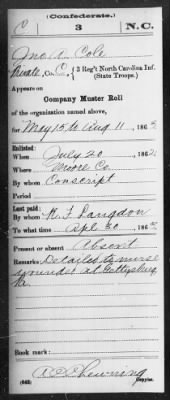 (Confederate.)
C 3 N.C.
Jno. A. Cole
Private, Co. C, 3 Reg't North Carolina Inf.
(State Troops.)
Appears on
Company Muster Roll
of the organization named above,
for May 15 to Aug 11, 186
Enlisted:
When July 20, 186
Where Moore Co.
By whom Conscript
Period
Last paid:
By whom W. T. Langdon
To what time Apl 30, 186
Present or absent Absent
Remarks: Detailed to nurse
wounded at Gettysburg
Pa.
Book mark:
(642) Copyist.